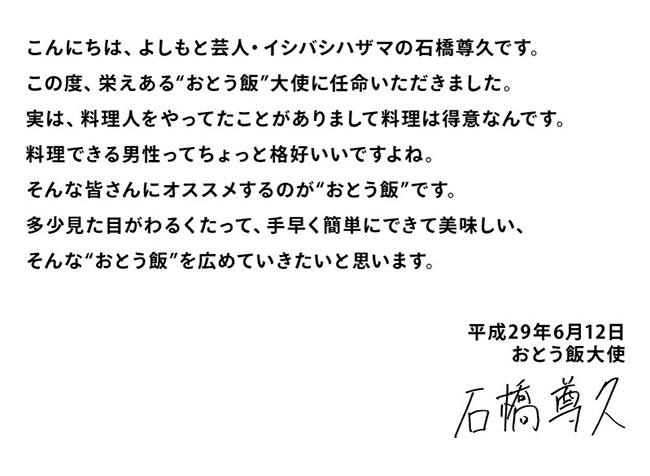 こんにちは、よしもと芸人・イシバシハザマの石橋尊久です。
この度、栄えある“おとう飯”大使に任命いただきました。
実は、料理人をやってたことがありまして料理は得意なんです。
料理できる男性ってちょっと格好いいですよね。
そんな皆さんにオススメするのが“おとう飯”です。
多少見た目がわるくたって、手早く簡単にできて美味しい、
そんな“おとう飯”を広めていきたいと思います。
平成29年6月12日
おとう飯大使
石橋尊久